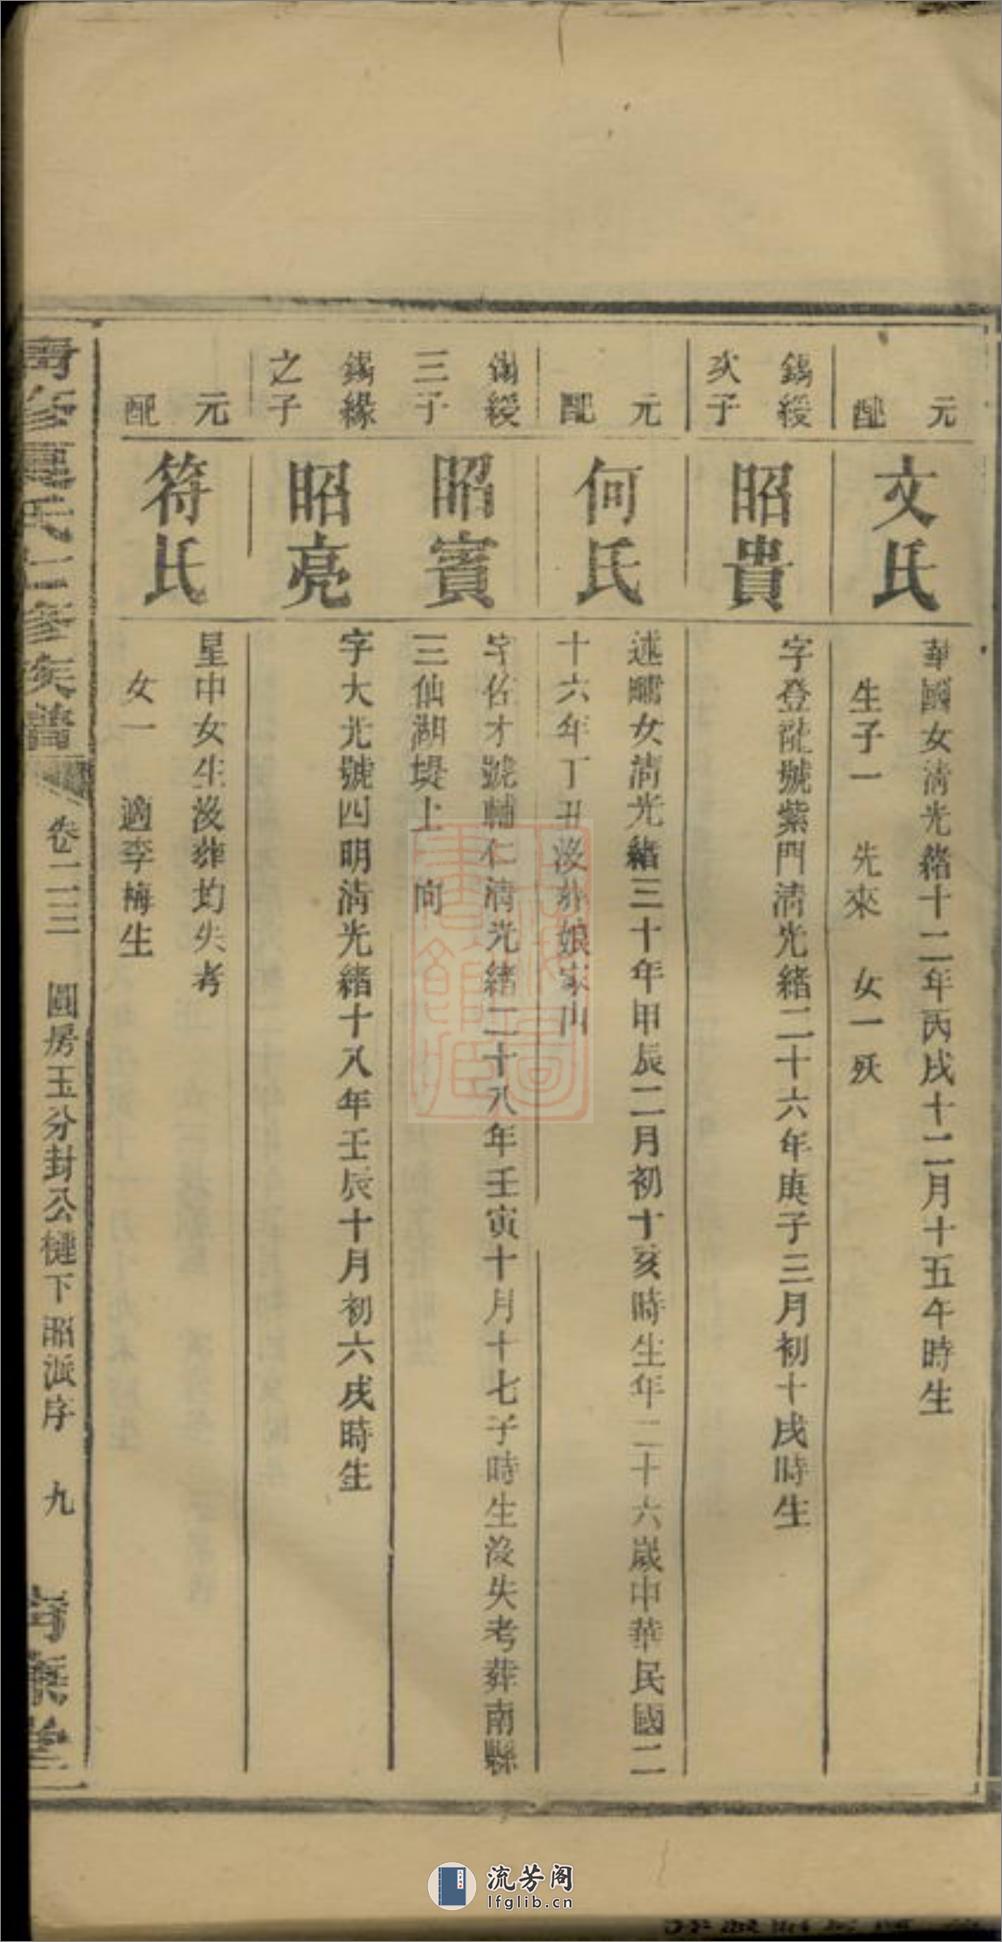 元配
文氏
華國女清光緒十二年丙戌十二月十五午時生
生子一　先來　女一殀
錫綬
次子
昭貴
字登龍號紫門清光緒二十六年庚子三月初十戌時生
元配
何氏
述疇女清光緒三十年甲辰二月初十亥時生年二十六歲中華民國二
十六年丁丑沒葬娘家山
錫綬
三子
昭賓
字佐才號輔仁清光緒二十八年壬寅十月十七子時生沒失考葬南縣
三仙湖堤上　向
錫緣
之子
昭亮
字大光號四明清光緒十八年壬辰十月初六戌時生
元配
符氏
星中女生沒葬均失考
女一　適李梅生
氏七修族譜
卷二三　圓房玉分封公樾下昭派序　九
堂
流芳阁
lfglib.cn